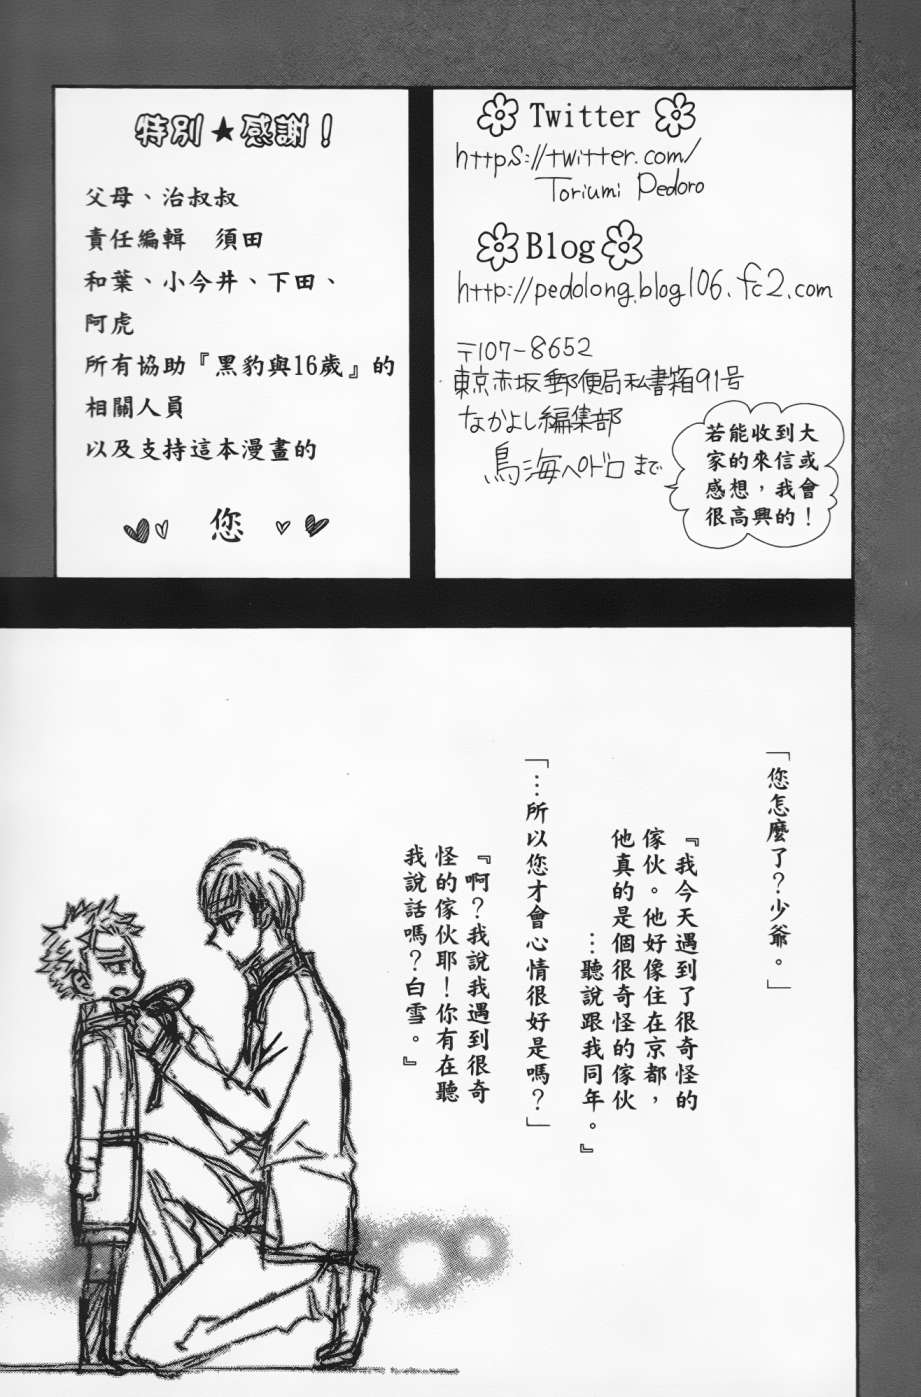 特別★感謝！
父母、治叔叔
責任編輯　須田
和葉、小今井、下田、
阿虎
所有協助『黑豹與16歲』的
相關人員
以及支持這本漫畫的
您
Twitter
https://twitter.com/
Toriumi Pedoro
Blog
http://pedolong.blog106.fc2.com
〒107-8652
東京赤坂郵便局私書箱91号
なかよし編集部
鳥海ペドロまで
若能收到大
家的來信或
感想，我會
很高興的！
「您怎麼了？少爺。」
『我今天遇到了很奇怪的
傢伙。他好像住在京都，
他真的是個很奇怪的傢伙
…聽說跟我同年。』
「…所以您才會心情很好是嗎？」
『啊？我說我遇到很奇
怪的傢伙耶！你有在聽
我說話嗎？白雪。』